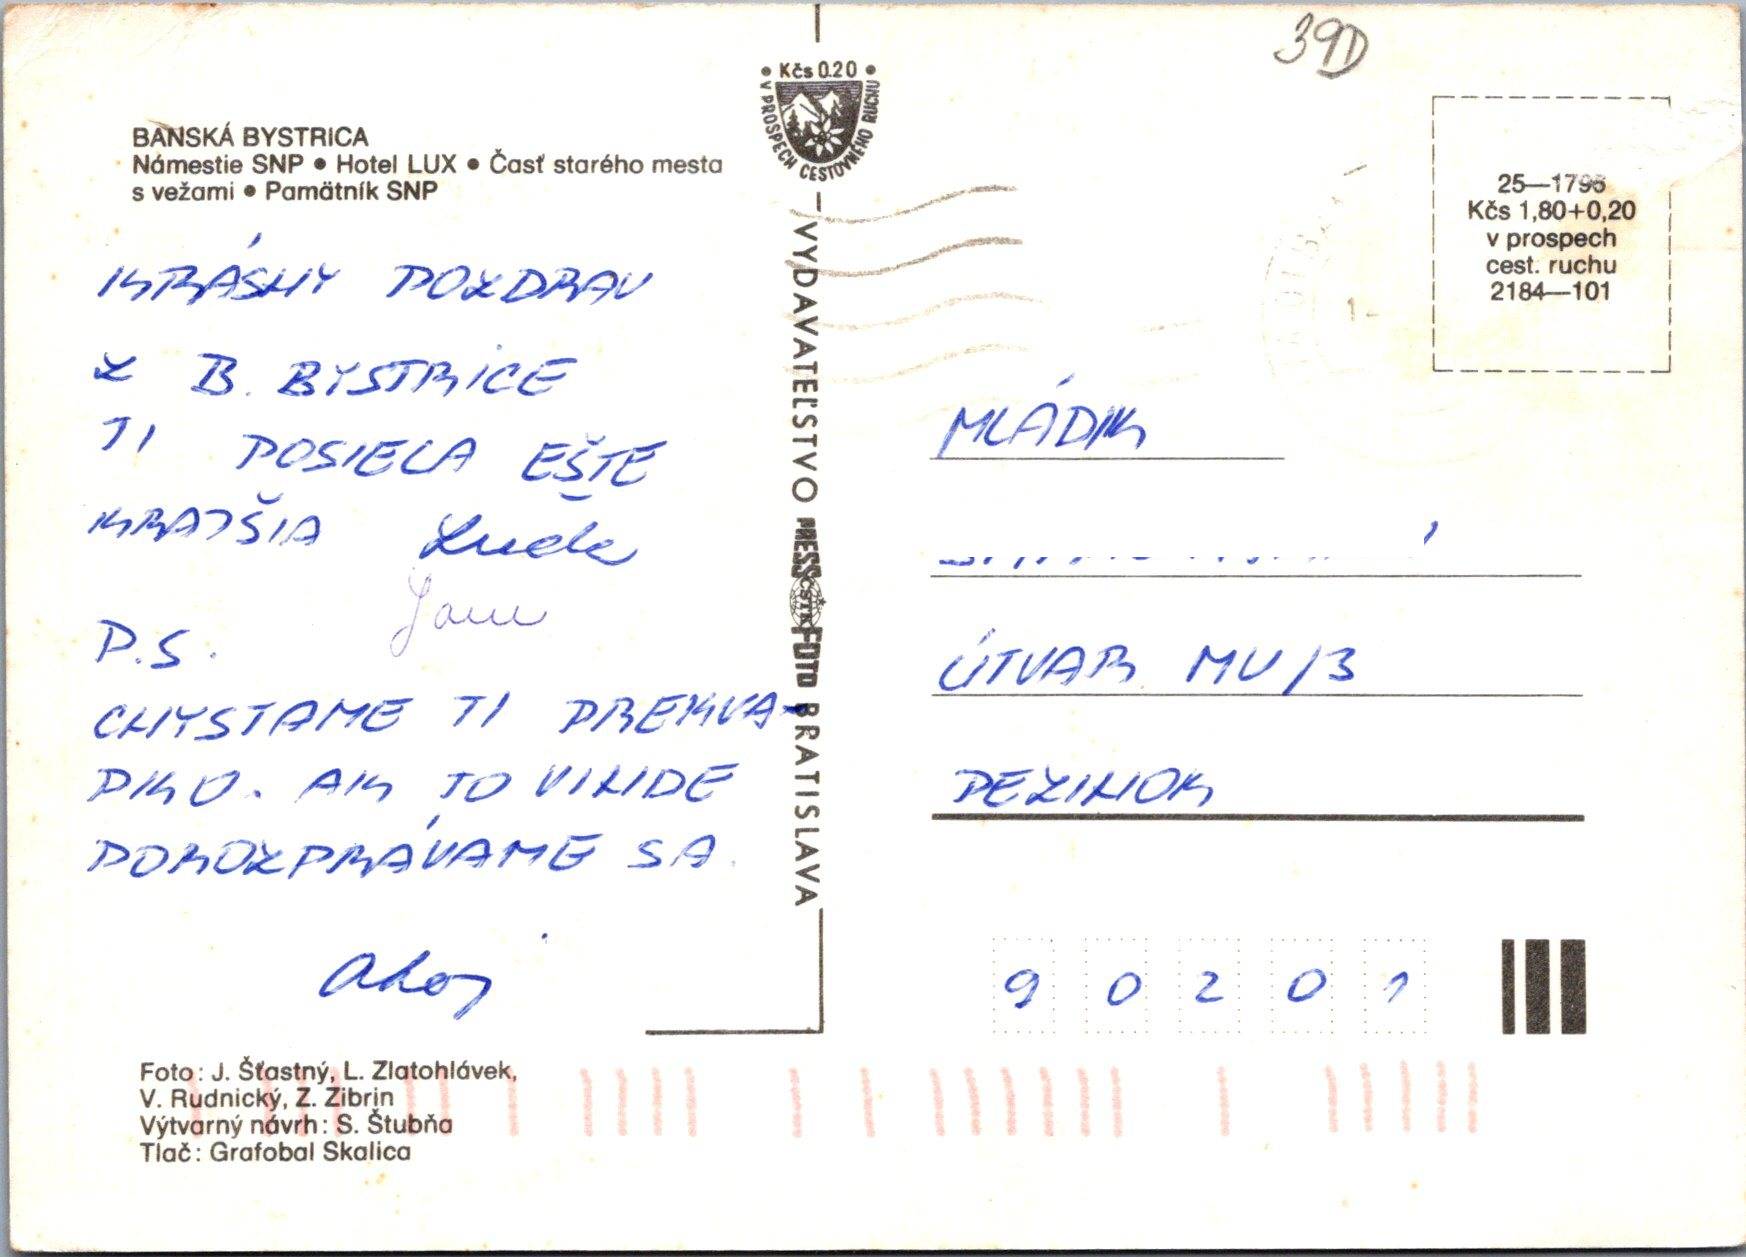 39D
• Kčs 0.20 •
V PROSPECH CESTOVNÉHO RUCHU
BANSKÁ BYSTRICA
Námestie SNP • Hotel LUX • Časť starého mesta
s vežami • Pamätník SNP
KRÁSNY POZDRAV
Z B. BYSTRICE
TI POSIELA EŠTE
KRAJŠIA
P.S.
CHYSTAME TI PREKVA-
PKO. AK TO VINDE
POROZPRÁVAME SA.
Ahoj
Foto: J. Šťastný, L. Zlatohlávek,
V. Rudnický, Z. Zibrin
Výtvarný návrh: S. Štubňa
Tlač: Grafobal Skalica
VYDAVATEĽSTVO PRESSFOTO BRATISLAVA
ČSTK
25—1795
Kčs 1,80+0,20
v prospech
cest. ruchu
2184—101
MLÁDIK
ÚTVAR MV/3
PEZINOK
90201